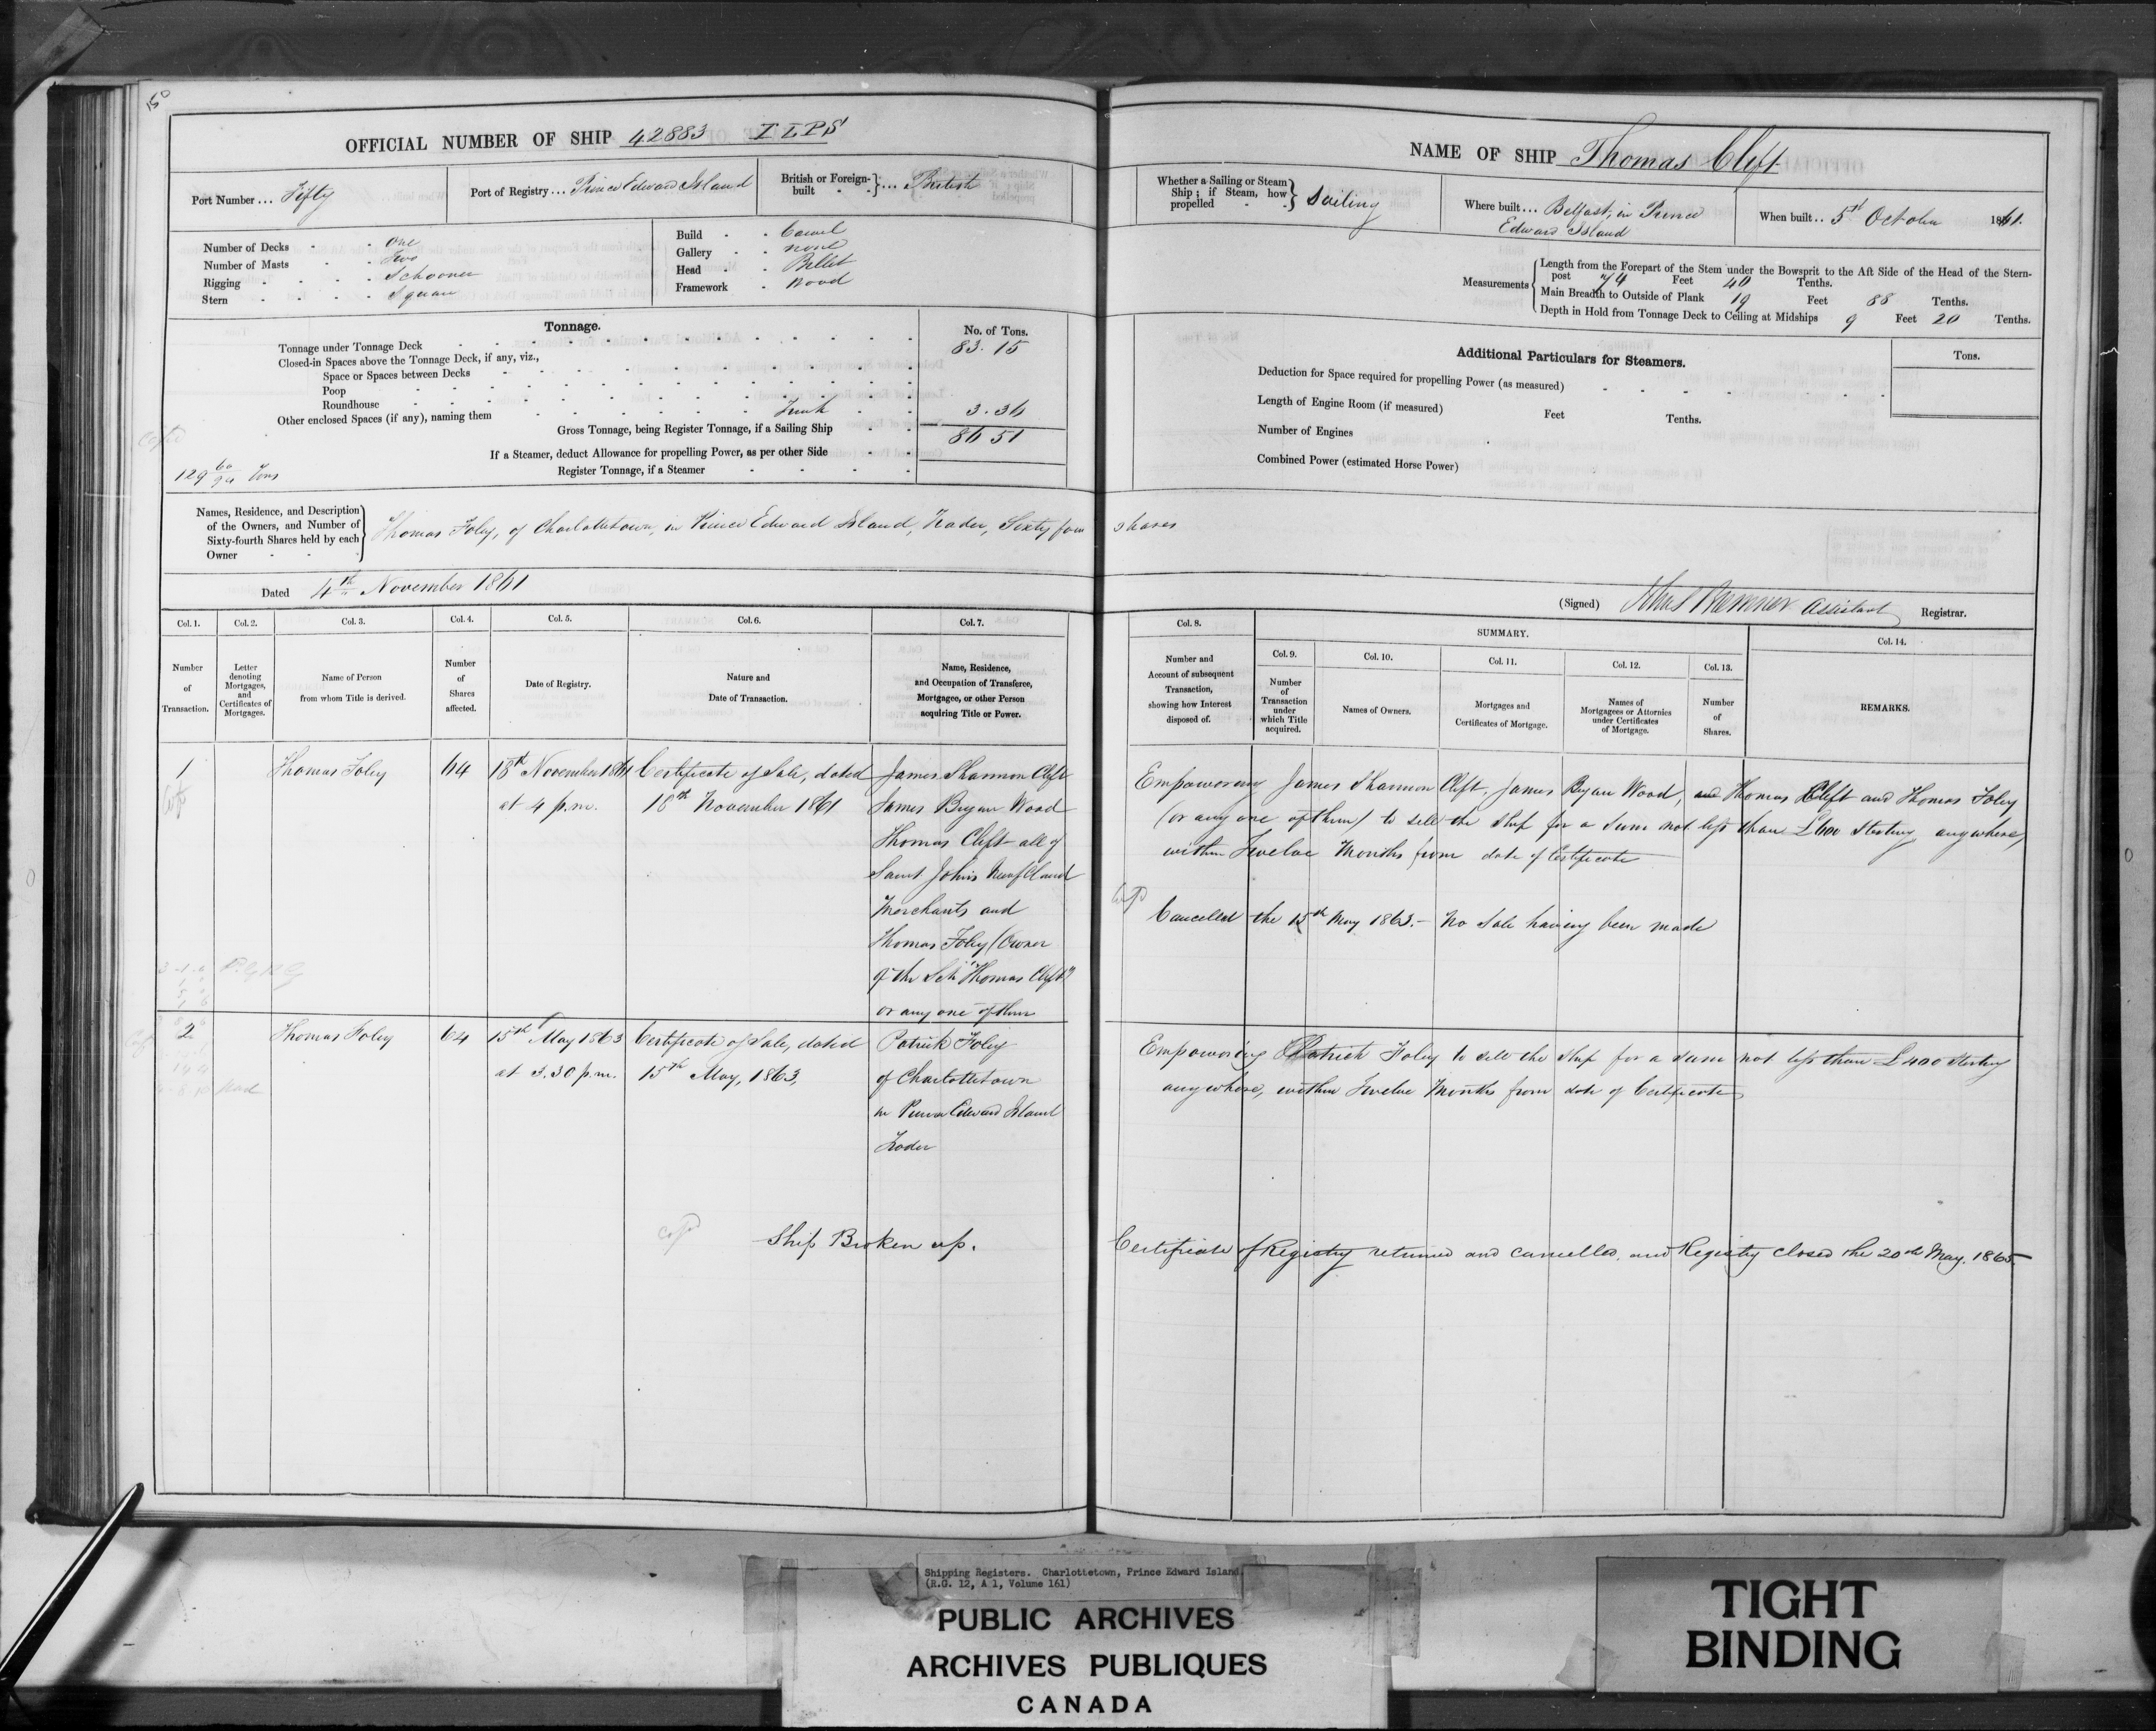 50
OFFICIAL NUMBER OF SHIP 42883
Port Number ... Fifty
Port of Registry ... Prince Edward Island
British or Foreign-built } ... British
Number of Decks - - One
Number of Masts - - Two
Rigging - - - - Schooner
Stern - - - - Square
Build - - Carvel
Gallery - - none
Head - - Billet
Framework - Wood
Tonnage.
No. of Tons.
Tonnage under Tonnage Deck 83.15
Closed-in Spaces above the Tonnage Deck, if any, viz.,
Space or Spaces between Decks
Poop
Roundhouse
Other enclosed Spaces (if any), naming them Trunk 3.36
Gross Tonnage, being Register Tonnage, if a Sailing Ship 86 51
If a Steamer, deduct Allowance for propelling Power, as per other Side
Register Tonnage, if a Steamer
129 60/94 Tons
Names, Residence, and Description of the Owners, and Number of Sixty-fourth Shares held by each Owner } Thomas Foley, of Charlottetown, in Prince Edward Island, Trader, Sixty four shares
Dated 4th November 1861
NAME OF SHIP Thomas Clift
Whether a Sailing or Steam Ship; if Steam, how propelled } Sailing
Where built ... Belfast, in Prince
Edward Island
When built .. 5th October 1861.
Measurements
Length from the Forepart of the Stem under the Bowsprit to the Aft Side of the Head of the Stern-
post 74 Feet 40 Tenths.
Main Breadth to Outside of Plank 19 Feet 88 Tenths.
Depth in Hold from Tonnage Deck to Ceiling at Midships 9 Feet 20 Tenths.
Additional Particulars for Steamers.
Tons.
Deduction for Space required for propelling Power (as measured)
Length of Engine Room (if measured) Feet Tenths.
Number of Engines
Combined Power (estimated Horse Power)
(Signed) Assistant Registrar.
Col. 1. Col. 2. Col. 3. Col. 4. Col. 5. Col. 6. Col. 7.
Number of Transaction.
Letter denoting Mortgages, and Certificates of Mortgages.
Name of Person from whom Title is derived.
Number of Shares affected.
Date of Registry.
Nature and Date of Transaction.
Name, Residence, and Occupation of Transferee, Mortgagee, or other Person acquiring Title or Power.
Col. 8.
Number and Account of subsequent Transaction, showing how Interest disposed of.
SUMMARY.
Col. 9. Col. 10. Col. 11. Col. 12. Col. 13.
Number of Transaction under which Title acquired.
Names of Owners.
Mortgages and Certificates of Mortgage.
Names of Mortgagees or Attornies under Certificates of Mortgage.
Number of Shares.
Col. 14.
REMARKS.
1 Thomas Foley 64 18th November 1861 Certificate of Sale, dated James Shannon Clift
at 4 p.m. 18th November 1861 James Bryan Wood
Thomas Clift all of
Saint Johns Newfldland
Merchants and
Thomas Foley (Owner
of the Sch "Thomas Clift")
or any one of them
Empowering James Shannon Clift, James Bryan Wood, and Thomas Clift and Thomas Foley
(or any one of them) to sell the ship for a sum not less than £600 Sterling anywhere,
within Twelve Months from date of Certificate
Cancelled the 15th May 1863. - No Sale having been made
2 Thomas Foley 64 15th May 1863 Certificate of Sale, dated Patrick Foley
at 3.30 p.m. 15th May, 1863, of Charlottetown
in Prince Edward Island
Trader
Empowering Patrick Foley to sell the ship for a sum not less than £400 Sterling
anywhere, within Twelve Months from date of Certificate
Ship Broken up.
Certificate of Registry returned and cancelled, and Registry closed the 20th May. 1865.
Shipping Registers. Charlottetown, Prince Edward Island
(R.G. 12, A 1, Volume 161)
PUBLIC ARCHIVES
ARCHIVES PUBLIQUES
CANADA
TIGHT
BINDING